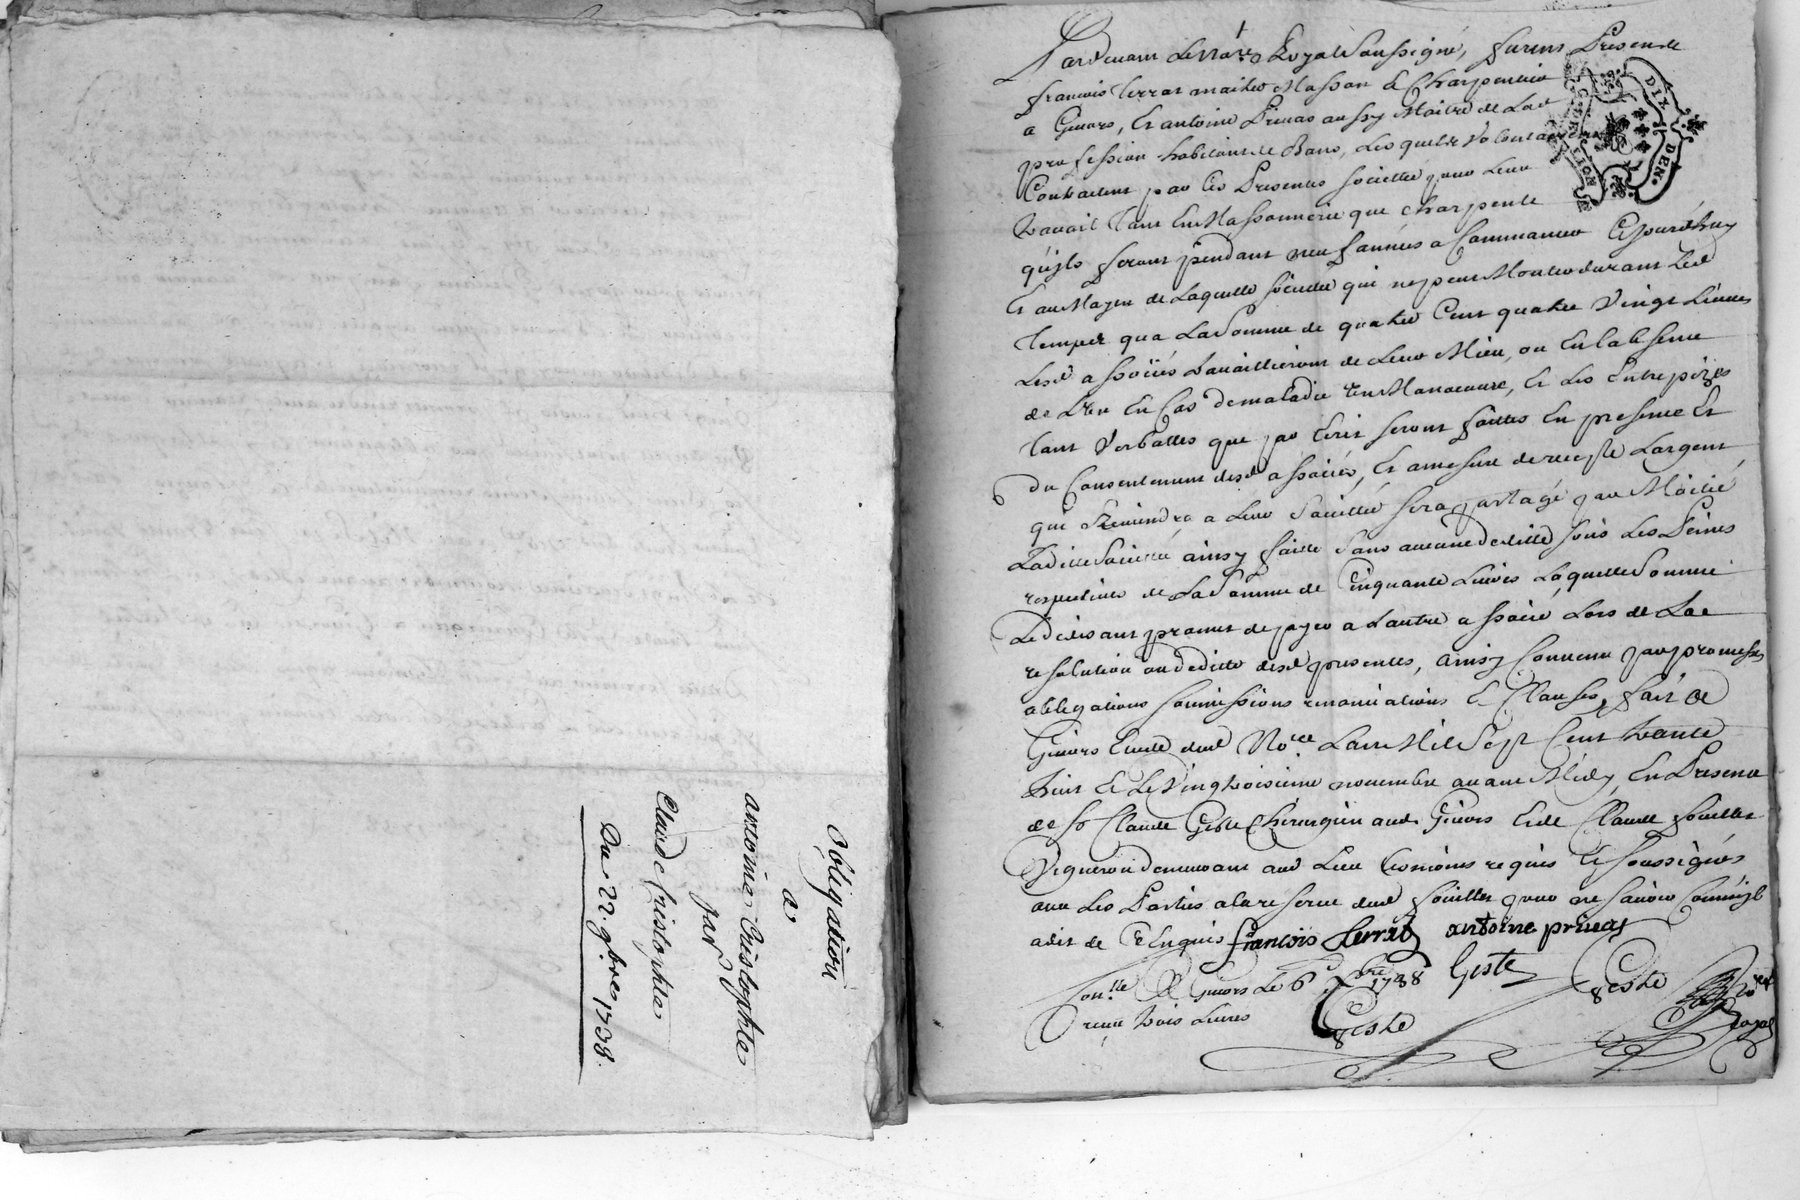 Obligation
a
antoine Cristophle
par
Claude Cristophle
Du 22. 9bres 1738.
Pardevant Le No.re Royal Soussigné, furent Presents
francois Terrat maitre Masson & Charpentier
a Givors, Et antoine Privas aussy Maitre de Lad
profession habitant de Bans, Lesquels Volontairement
Contractent par Ces Presentes Societté pour Leur
travail tant En Massonnerie que Charpente
qu'ils feront pendant neuf années a Commancer Cejourd'huy
Et au Moyen de Laquelle Societté qui ne peut Monter durant Led
temps qu'a La Somme de quatre Cent quatre Vingt Livres
Lesd associés travaillieront de Leur Mieux, ou En l'absence
de L'un En Cas de maladie Un Manoeuvre, Et Les Entreprizes
tant Verballes que par Ecrit seront faittes En presence Et
Du Consentement desd associés, Et a mesure de recepte L'argent
qui reviendra a Leur Societté sera partagé par Moitié
Laditte Societté ainsy faitte Sans aucun deditte sous Les Peines
respectives de La Somme de Cinquante Livres Laquelle Somme
Le Dedisant promet de payer a L'autre associé Lors de La
resolution ou deditte desd presentes, ainsy Convenu par promesses
obligations soumissions renonciations & Clauses, fait a
Givors Etude dud No.re L'an Mil Sept Cent trente
huit Et Le Vingtroisieme novembre avant Midy, En Presence
de Sr Claude Geste Chirurgien aud Givors Et de Claude fouillet
Vigneron demeurant aud Lieu temoins requis Et soussignés
avec Les Parties a la reserve dud fouillet pour ne savoir Comme il
a dit de Ce Enquis francois terrat antoine privas
Geste
Geste
Con.lle A Givors Le 6e Xbre 1738
recu trois Livres
Geste
No.re
Royal
G. DE LION
DIX DEN.